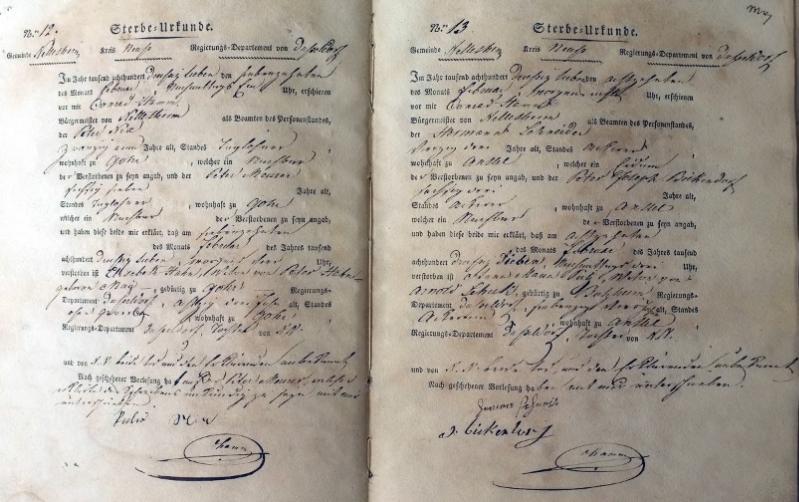 Nro 12.
Sterbe-Urkunde.
Gemeinde Nettesheim Kreis Neuss Regierungs-Departement von Düsseldorf
Im Jahr tausend achthundert dreisig sieben den siebenzehnten
des Monats Februar Nachmittags Uhr, erschienen
vor mir Conrad Hamm
Bürgermeister von Nettesheim als Beamten des Personenstandes,
der Peter
zwanzig eins Jahre alt, Standes Taglöhner
wohnhaft zu Gohr, welcher ein Nachbar
der Verstorbenen zu seyn angab, und der Peter Meurer
sechzig sieben Jahre alt,
Standes Taglöhner, wohnhaft zu Gohr
welcher ein Nachbar der Verstorbenen zu seyn angab,
und haben diese beide mir erklärt, daß am siebenzehnten
des Monats Februar des Jahres tausend
achthundert dreisig sieben, morgens drei Uhr,
verstorben ist Elisabeth Hahn, Witwe von Peter
geboren, gebürtig zu Gohr Regierungs-
Departement Düsseldorf, achtzig drei Jahre alt, Standes
ohne Gewerb, wohnhaft zu Gohr
Regierungs-Departement Düsseldorf, Tochter von N.N.
und von N.N. beide todt und den Erklärenden unbekannt
Nach geschehener Vorlesung haben
unterschrieben
Peter
Hamm
Nro 13
Sterbe-Urkunde.
Gemeinde Nettesheim Kreis Neuss Regierungs-Departement von Düsseldorf
Im Jahr tausend achthundert dreisig sieben den achtzehnten
des Monats Februar morgens Uhr, erschienen
vor mir Conrad Hamm
Bürgermeister von Nettesheim als Beamten des Personenstandes,
der Hermann Schneider
vierzig drei Jahre alt, Standes Ackerer
wohnhaft zu Anstel, welcher ein Eidam
der Verstorbenen zu seyn angab, und der Peter Joseph Bickendorf
sechzig drei Jahre alt,
Standes Ackerer, wohnhaft zu Anstel
welcher ein Nachbar der Verstorbenen zu seyn angab,
und haben diese beide mir erklärt, daß am achtzehnten
des Monats Februar des Jahres tausend
achthundert dreisig sieben, Uhr,
verstorben ist Anna Maria, Witwe von
Arnold, gebürtig zu Regierungs-
Departement Düsseldorf, siebenzig Jahre alt, Standes
Ackerin, wohnhaft zu Anstel
Regierungs-Departement Düsseldorf, Tochter von N.N.
und von N.N. beide todt und den Erklärenden unbekannt
Nach geschehener Vorlesung haben mit mir unterschrieben.
Bickendorf
Hamm